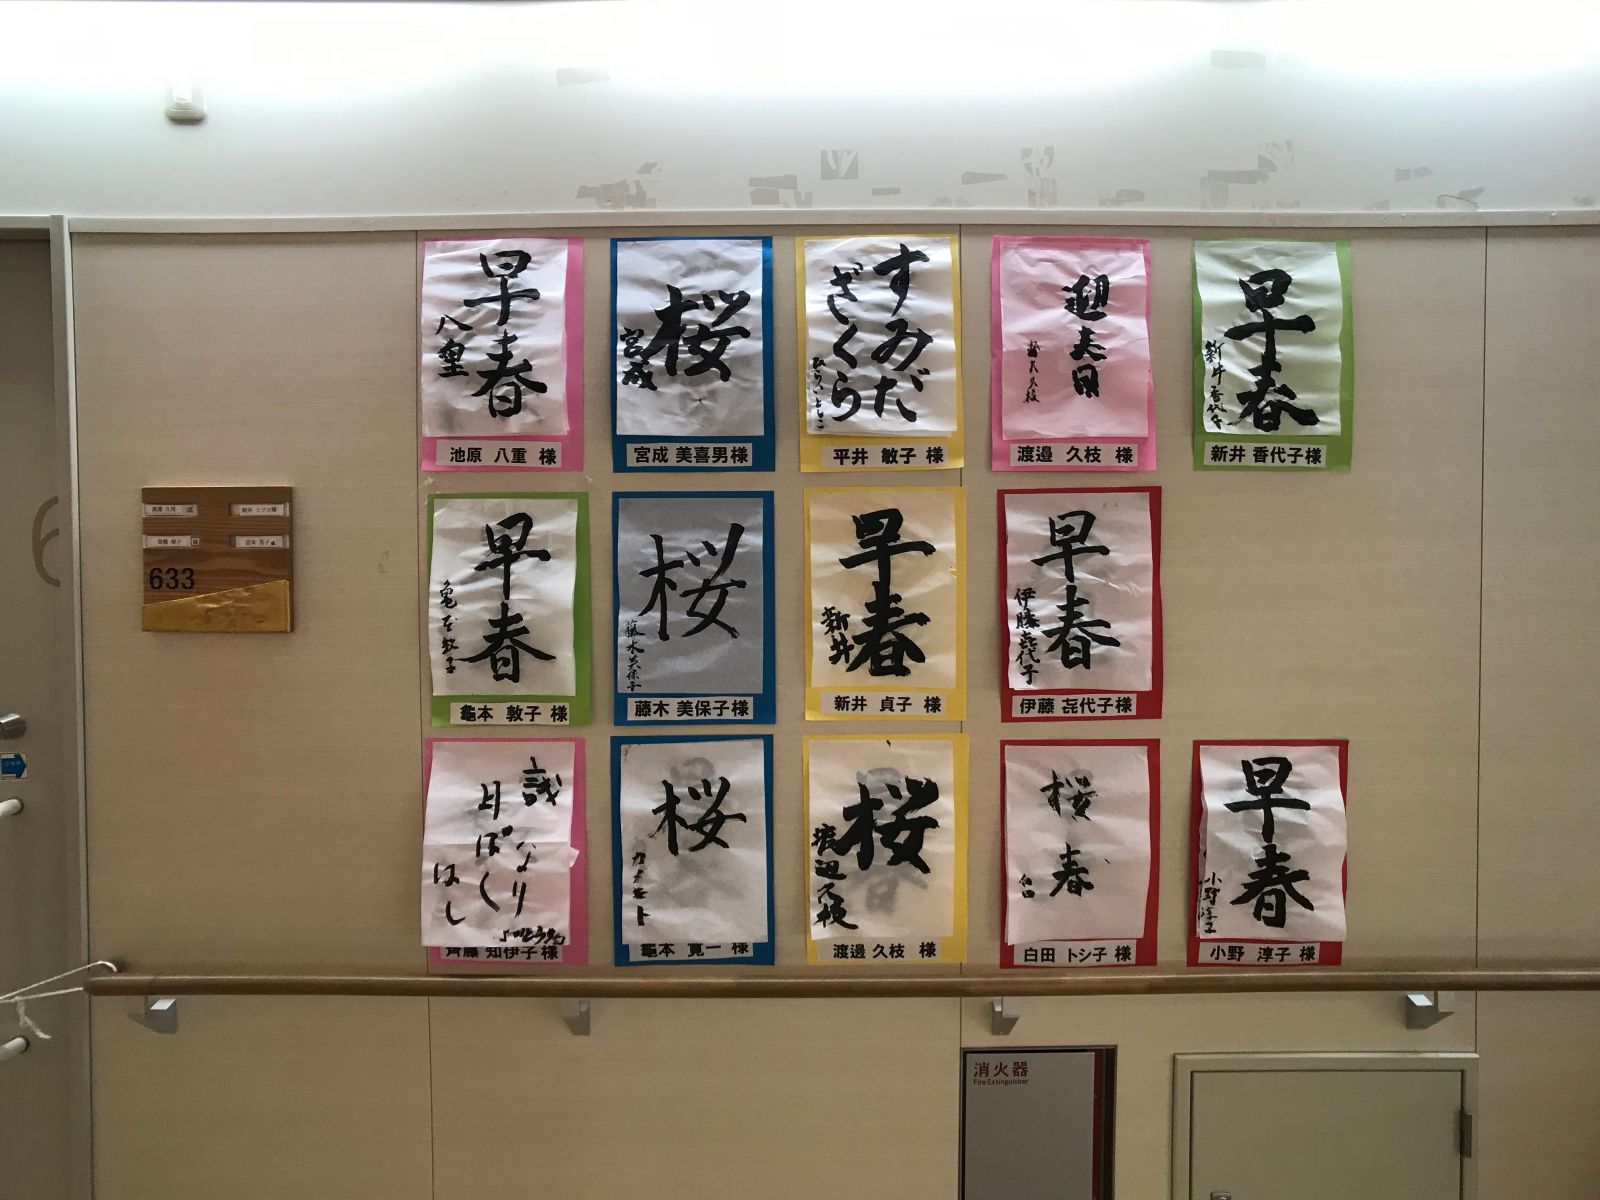 早春
八重
池原 八重 様
桜
宮成
宮成 美喜男様
すみだ
ざくら
ひらいとしこ
平井 敏子 様
迎春
渡邉 久枝 様
早春
新井香代子
新井 香代子様
早春
龜本 敦子 様
桜
藤木美保子
藤木 美保子様
早春
新井
新井 貞子 様
早春
伊藤㐂代子
伊藤 㐂代子様
誠
なり
月ぼく
はし
齊藤 知伊子様
桜
カメモト
龜本 寛一 様
桜
渡辺久枝
渡邉 久枝 様
桜
春
白田
白田 トシ子 様
早春
小野淳子
小野 淳子 様
633
消火器
Fire Extinguisher